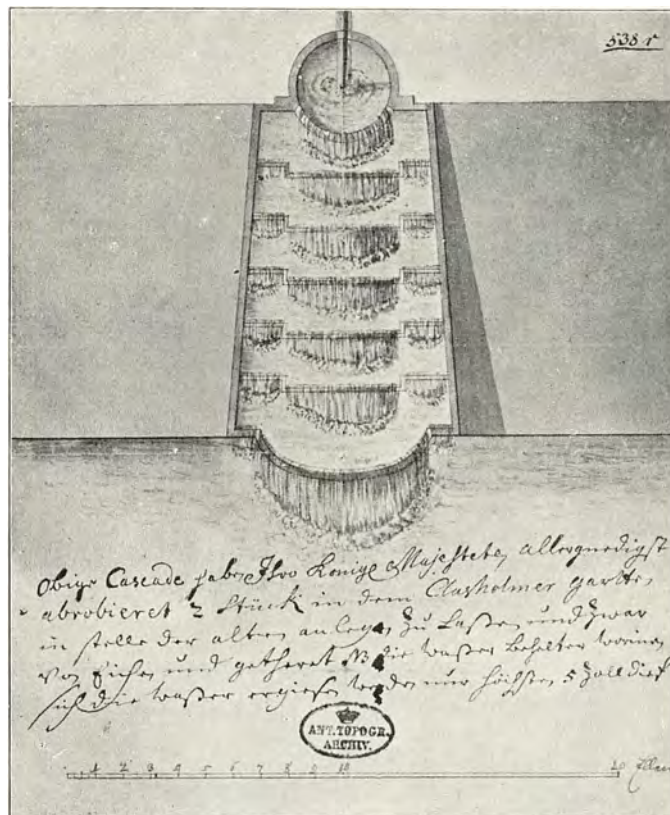 538 r
Obige Cascade haben Ihro Konigl Majestete allergnedigst
abrobieret 2 Stück in dem Clausholmer garten
in stelle der alten anlegen zu laßen und zwar
von Eichen und getheret NB die waßer behalter worinen
sich die waßer ergiesen werden nur höchsten 5 Zoll dief
ANT. TOPOGR.
ARCHIV.
1 2 3 4 5 6 7 8 9 10 20 Ellen